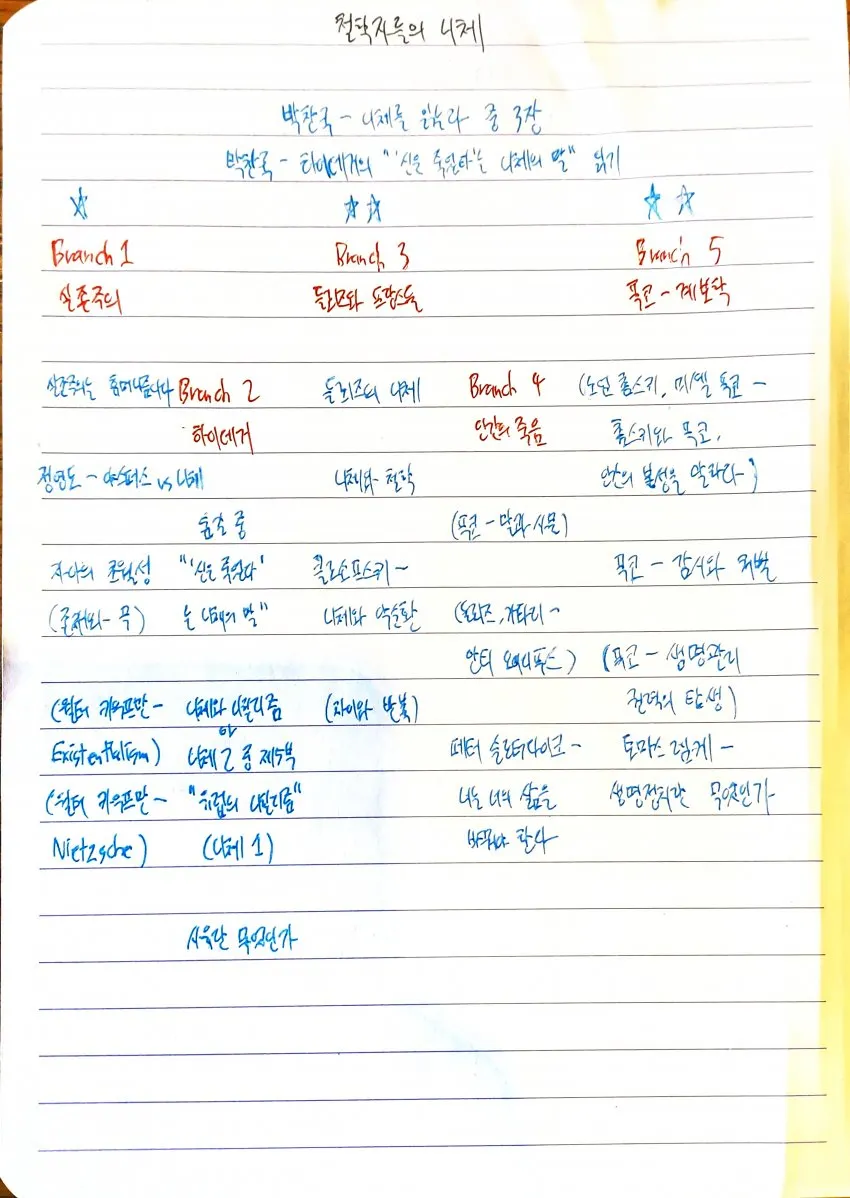 철학자들의 니체
박찬국 - 니체를 읽는다 중 3장
박찬국 - 하이데거의 "'신은 죽었다'는 니체의 말" 읽기
☆ ☆☆ ☆ ☆
Branch 1 Branch 3 Branch 5
실존주의 들뢰즈와 프랑스들 푸코 - 계보학
실존주의는 휴머니즘이다 Branch 2 들뢰즈의 니체 Branch 4 (노엄 촘스키, 미셸 푸코 -
하이데거 인간의 죽음 촘스키와 푸코,
정영도 - 야스퍼스 vs 니체 니체와 철학 인간의 본성을 말하다)
숲길 중 (푸코 - 말과 사물)
자아의 초월성 "'신은 죽었다' 클로소프스키 - 푸코 - 감시와 처벌
(존재와 무) 는 니체의 말" 니체와 악순환 (들뢰즈, 가타리 -
안티 오이디푸스) (푸코 - 생명관리
(월터 카우프만 - 니체와 니힐리즘 (차이와 반복) 권력의 탄생)
Existentialism) or 니체 2 중 제5부 페터 슬로터다이크 - 토마스 렘케 -
(월터 카우프만 - "유럽의 니힐리즘" 너는 너의 삶을 생명정치란 무엇인가
Nietzsche) (니체 1) 바꿔야 한다
사유란 무엇인가